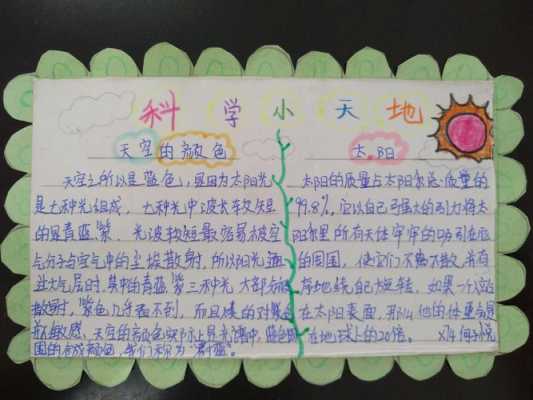 科学小天地
天空的颜色
天空之所以是蓝色,是因为太阳光
是七种光组成,七种光中波长较短
的是青蓝紫,光波较短最容易被空
气分子与空气中的尘埃散射,所以阳光通
过大气层时,其中的青蓝紫三种光大部分被
散射,紫色几乎看不到,而且
敏感,天空的颜色实际上是光谱中蓝色
国的合成颜色,我们称为"蔚蓝"。
太阳
太阳的质量占太阳系总质量的
99.8%,它以自己强大的引力将太
阳系里所有天体牢牢的吸引在
的周围,使它们不离不散,并有
序地绕自己旋转,如果一个
在太阳表面,那么他的体重会是
在地球上的20倍。